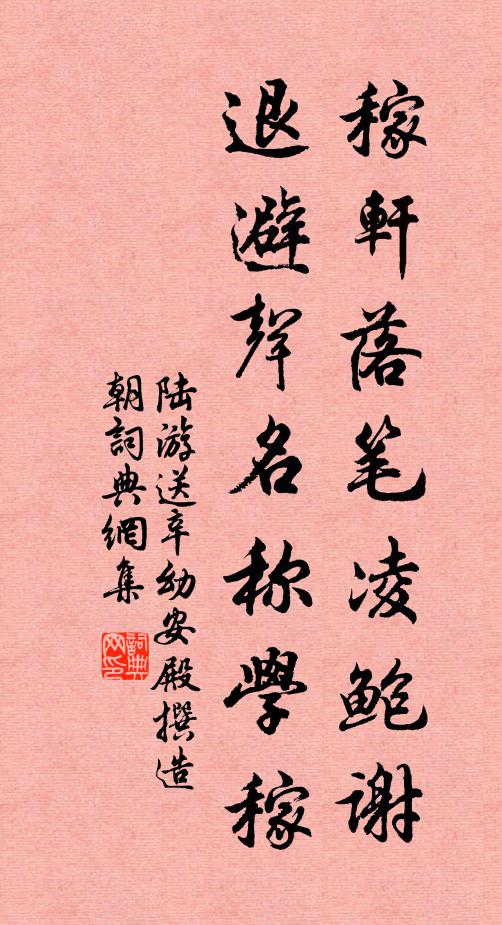 稼軒落笔凌鲍谢
退避聲名称學稼
陆游送辛幼安殿撰造
朝詞典網集
詞典网印